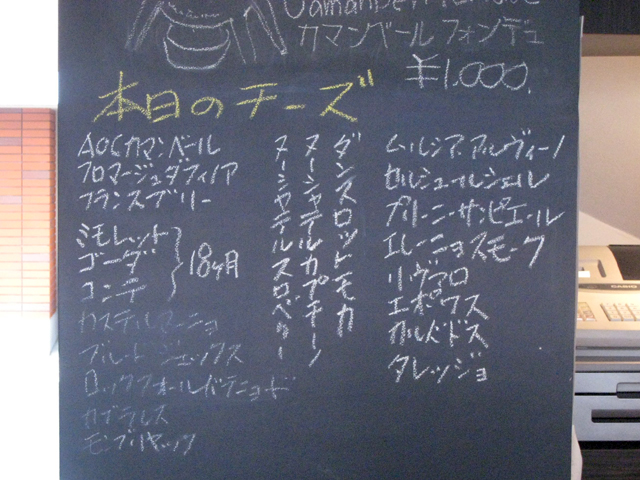 カマンベール フォンデュ
¥1.000.
本日のチーズ
AOCカマンベール
フロマージュダフィノア
フランスブリー
ミモレット
ゴーダ
コンテ
18ヶ月
カステルマーニョ
ブルードジェックス
カブラレス
モンブリヤック
ダンスロッドモカ
ヌーシャテルカプチーノ
ヌーシャテルスロベリー
ムルシア・アルヴィーノ
セルシュールシェル
プリーニーサンピエール
エレーニョスモーク
リヴァロ
エポワス
カルバドス
タレッジョ
CASIO